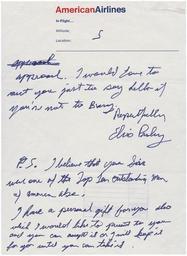 AmericanAirlines
In Flight...
Altitude;
Location; 5
approach
approach. I would love to
meet you just to say hello if
you're not to Busy.
Respectfully
Elvis Presley
P.S. I believe that you Sir
were one of the Top Ten Outstanding Men
of America also.
I have a personal gift for you also
which I would like to present to you
and you can accept it or I will keep it
for you until you can take it.